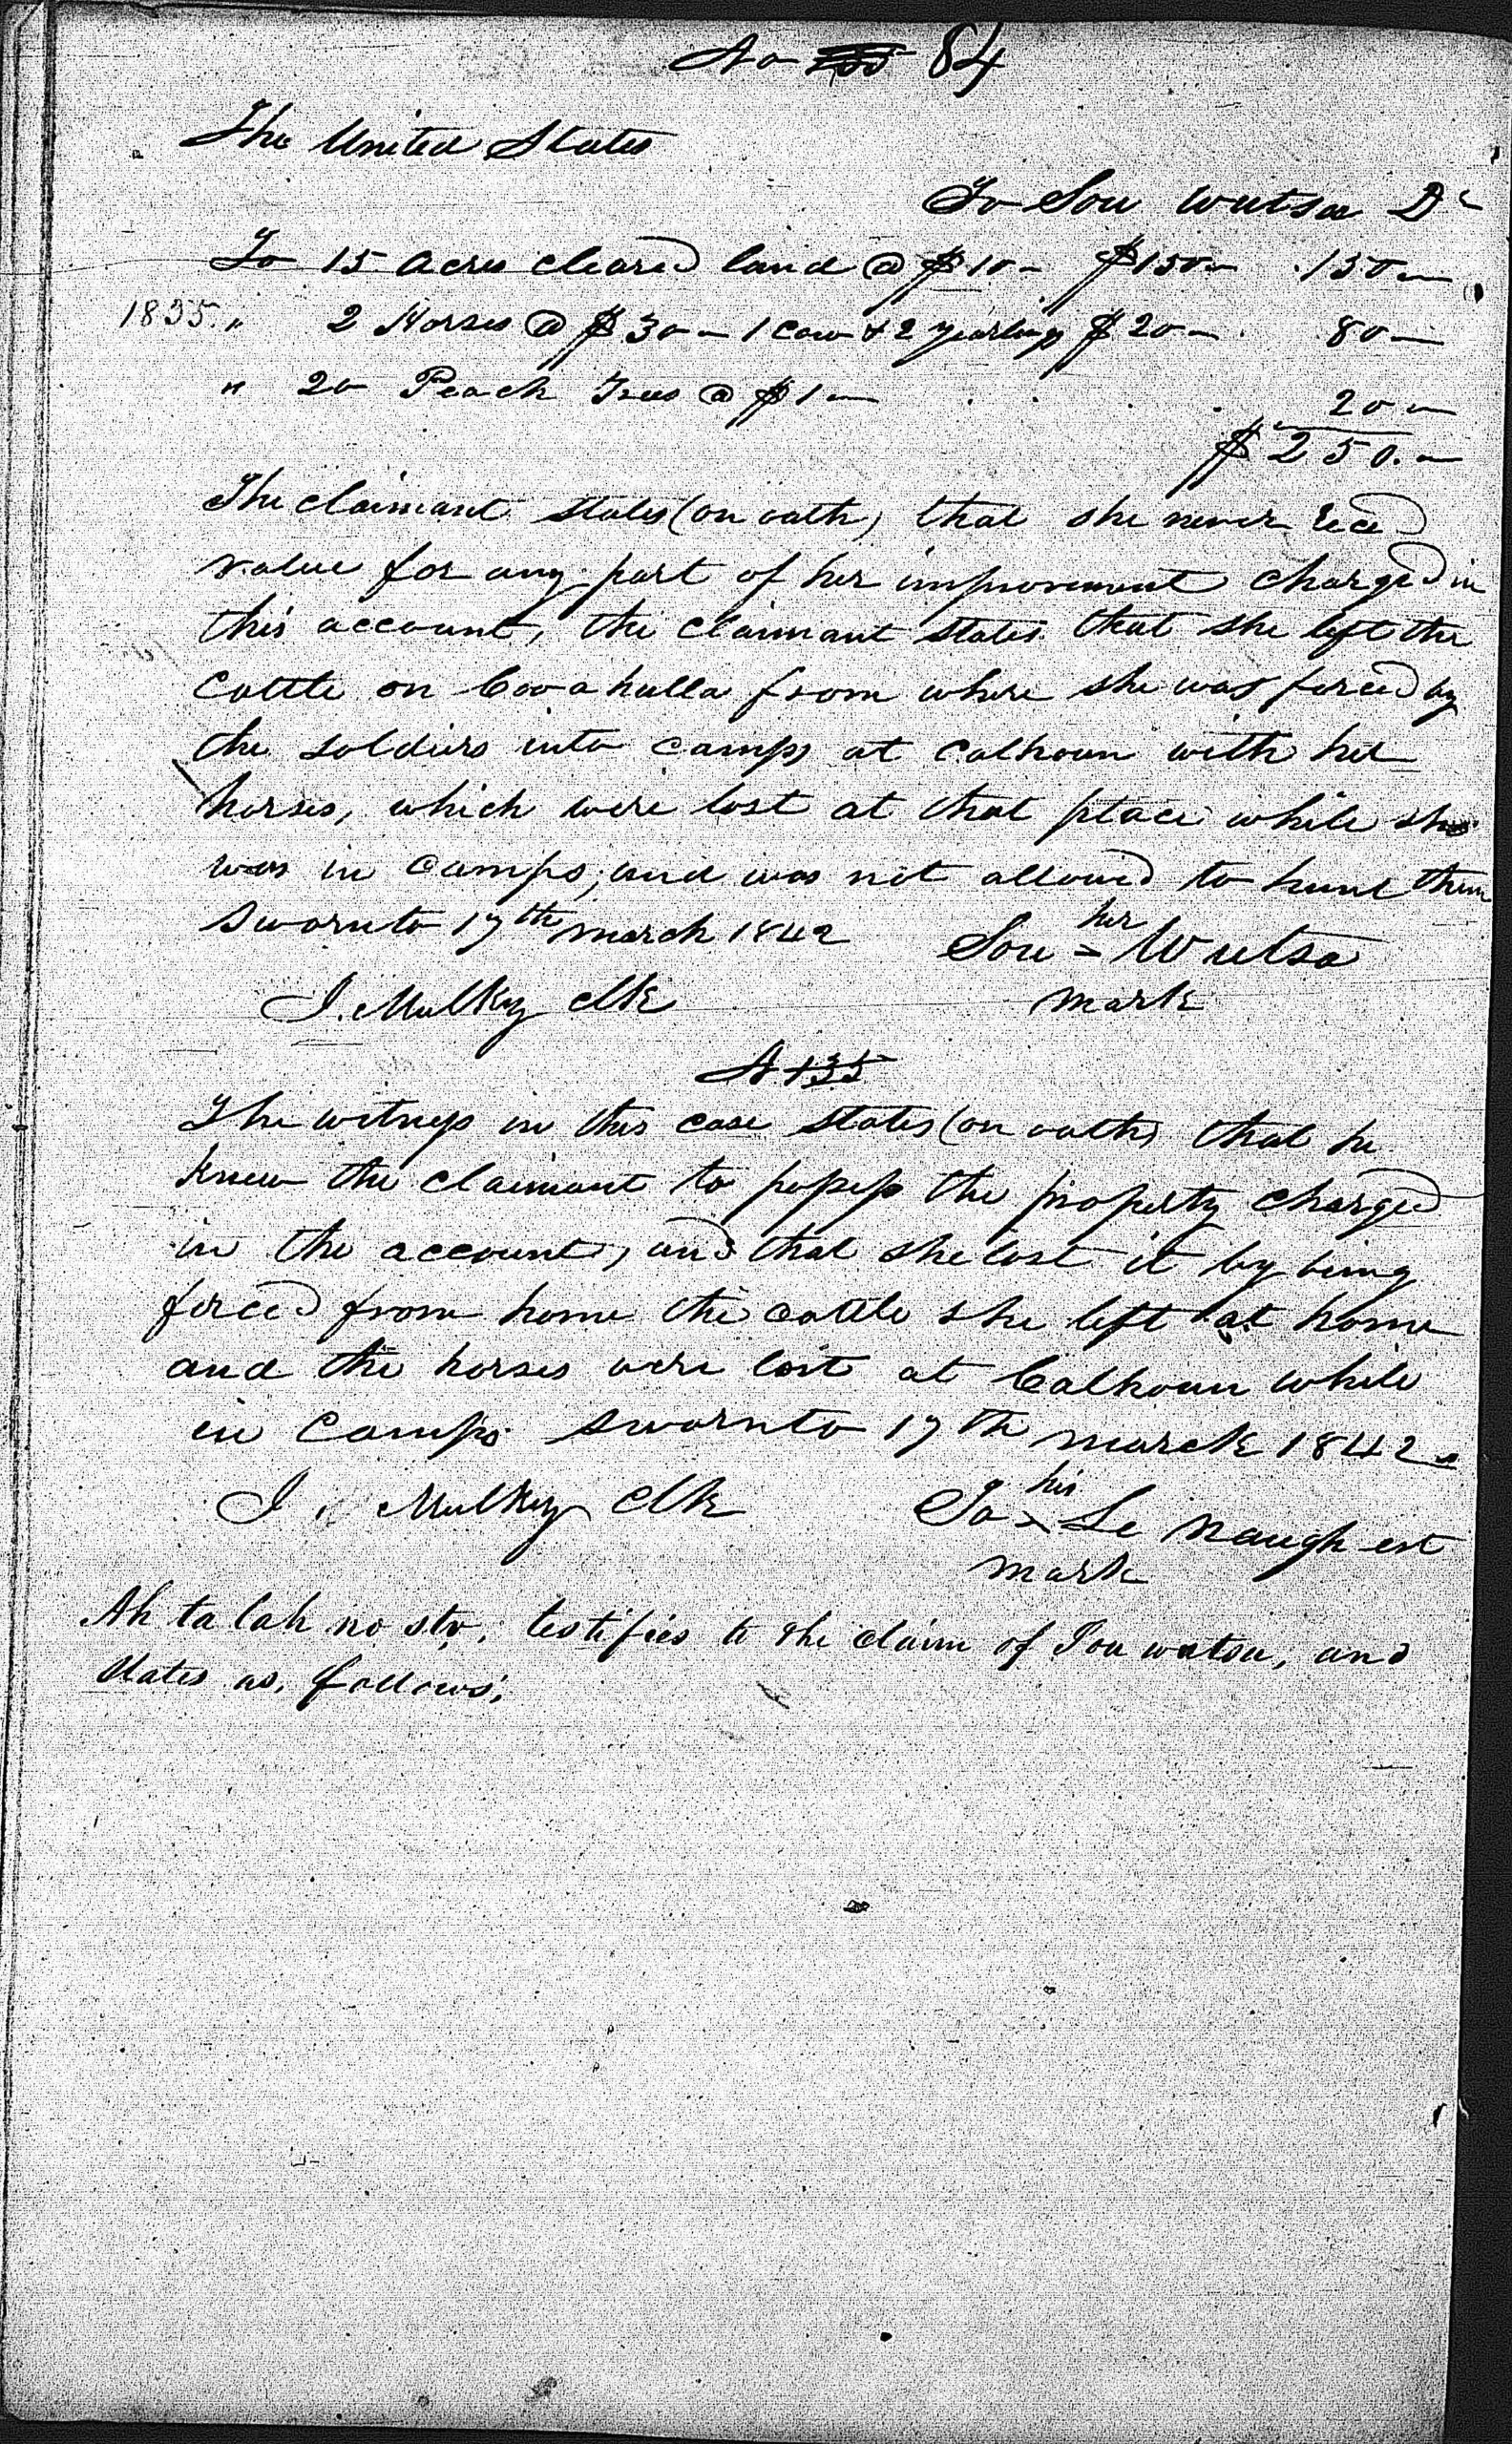 No 84
The United States
To Sou wutsa Dr
To 15 Acres cleared land @ $10 – $150 – 150 –
1835. " 2 Horses @ $30 – 1 cow & 2 yearlings $20 – 80 –
" 20 Peach Trees @ $1 – 20 –
$250. –
The claimant states (on oath) that she never recd
value for any part of her improvement charged in
this account, the claimant states that she left the
cattle on Cooahulla from where she was forced by
the soldiers into camps at Calhoun with her
horses, which were lost at that place while she
was in camps, and was not allowed to hunt them
Sworn to 17th march 1842 Sou her x Wutsa
J. Mulkey clk mark
A 135
The witness in this case states (on oath) that he
knew the claimant to possess the property charged
in the account, and that she lost it by being
forced from home the cattle she left at home
and the horses were lost at Calhoun while
in camps. Sworn to 17th march 1842.
J. Mulkey clk his
mark
Ah ta lah no sty, testifies to the claim of Sou watsa, and
States as, follows;